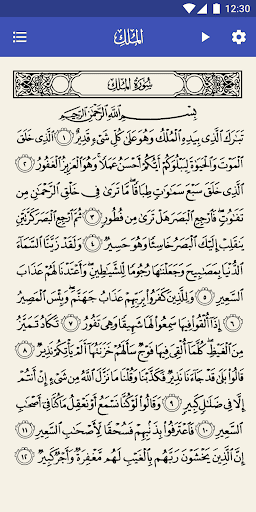 12:30
المُلْك
سُورَةُ المُلْكِ
بِسْمِ ٱللَّهِ ٱلرَّحْمَٰنِ ٱلرَّحِيمِ
تَبَٰرَكَ ٱلَّذِى بِيَدِهِ ٱلْمُلْكُ وَهُوَ عَلَىٰ كُلِّ شَىْءٍ قَدِيرٌ ١ ٱلَّذِى خَلَقَ
ٱلْمَوْتَ وَٱلْحَيَوٰةَ لِيَبْلُوَكُمْ أَيُّكُمْ أَحْسَنُ عَمَلًا وَهُوَ ٱلْعَزِيزُ ٱلْغَفُورُ ٢
ٱلَّذِى خَلَقَ سَبْعَ سَمَٰوَٰتٍ طِبَاقًا مَّا تَرَىٰ فِى خَلْقِ ٱلرَّحْمَٰنِ مِن
تَفَٰوُتٍ فَٱرْجِعِ ٱلْبَصَرَ هَلْ تَرَىٰ مِن فُطُورٍ ٣ ثُمَّ ٱرْجِعِ ٱلْبَصَرَ كَرَّتَيْنِ
يَنقَلِبْ إِلَيْكَ ٱلْبَصَرُ خَاسِئًا وَهُوَ حَسِيرٌ ٤ وَلَقَدْ زَيَّنَّا ٱلسَّمَآءَ
ٱلدُّنْيَا بِمَصَٰبِيحَ وَجَعَلْنَٰهَا رُجُومًا لِّلشَّيَٰطِينِ وَأَعْتَدْنَا لَهُمْ عَذَابَ
ٱلسَّعِيرِ ٥ وَلِلَّذِينَ كَفَرُوا۟ بِرَبِّهِمْ عَذَابُ جَهَنَّمَ وَبِئْسَ ٱلْمَصِيرُ
٦ إِذَآ أُلْقُوا۟ فِيهَا سَمِعُوا۟ لَهَا شَهِيقًا وَهِىَ تَفُورُ ٧ تَكَادُ تَمَيَّزُ
مِنَ ٱلْغَيْظِ كُلَّمَآ أُلْقِىَ فِيهَا فَوْجٌ سَأَلَهُمْ خَزَنَتُهَآ أَلَمْ يَأْتِكُمْ نَذِيرٌ ٨
قَالُوا۟ بَلَىٰ قَدْ جَآءَنَا نَذِيرٌ فَكَذَّبْنَا وَقُلْنَا مَا نَزَّلَ ٱللَّهُ مِن شَىْءٍ إِنْ أَنتُمْ
إِلَّا فِى ضَلَٰلٍ كَبِيرٍ ٩ وَقَالُوا۟ لَوْ كُنَّا نَسْمَعُ أَوْ نَعْقِلُ مَا كُنَّا فِىٓ أَصْحَٰبِ
ٱلسَّعِيرِ ١٠ فَٱعْتَرَفُوا۟ بِذَنۢبِهِمْ فَسُحْقًا لِّأَصْحَٰبِ ٱلسَّعِيرِ ١١
إِنَّ ٱلَّذِينَ يَخْشَوْنَ رَبَّهُم بِٱلْغَيْبِ لَهُم مَّغْفِرَةٌ وَأَجْرٌ كَبِيرٌ ١٢